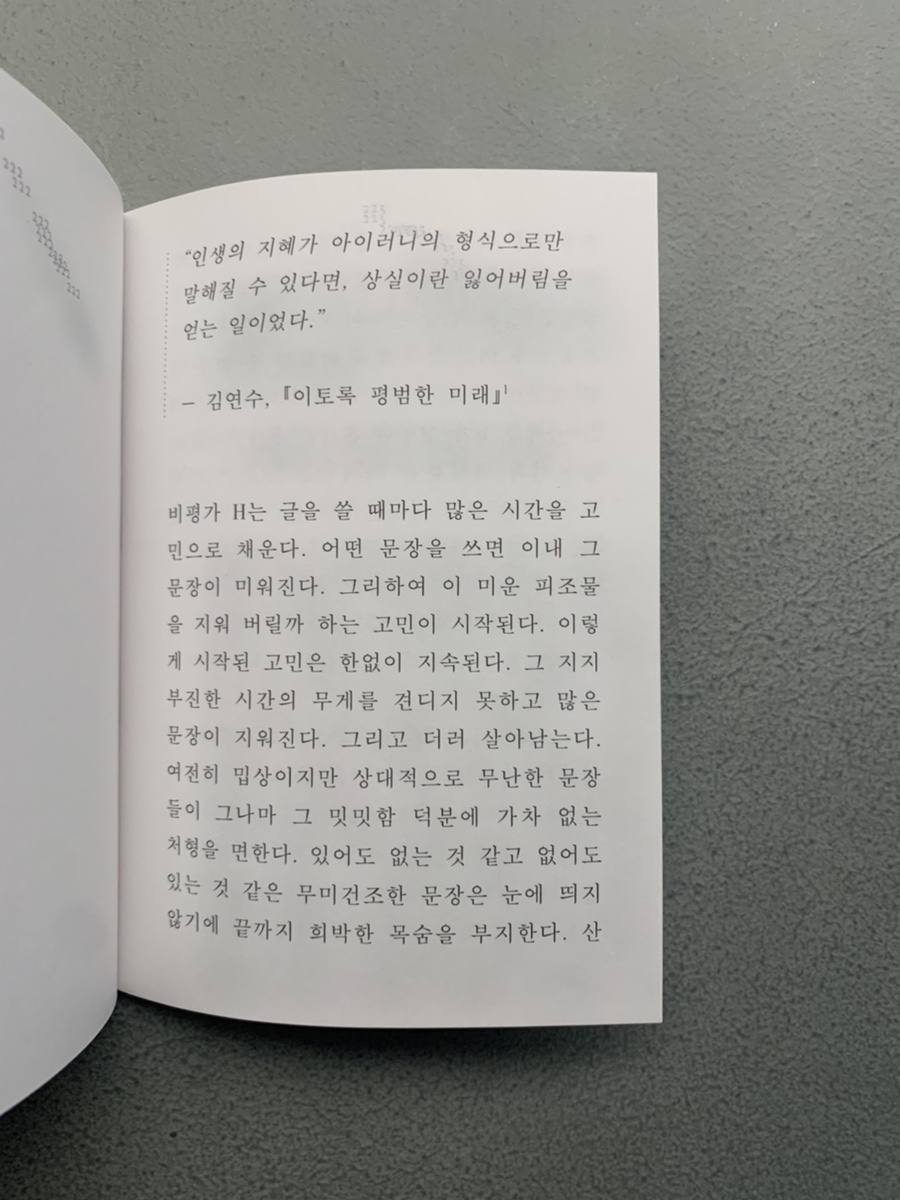 222
222
222
222
222
222
222
222
222
"인생의 지혜가 아이러니의 형식으로만
말해질 수 있다면, 상실이란 잃어버림을
얻는 일이었다."
– 김연수, 『이토록 평범한 미래』¹
비평가 H는 글을 쓸 때마다 많은 시간을 고
민으로 채운다. 어떤 문장을 쓰면 이내 그
문장이 미워진다. 그리하여 이 미운 피조물
을 지워 버릴까 하는 고민이 시작된다. 이렇
게 시작된 고민은 한없이 지속된다. 그 지지
부진한 시간의 무게를 견디지 못하고 많은
문장이 지워진다. 그리고 더러 살아남는다.
여전히 밉상이지만 상대적으로 무난한 문장
들이 그나마 그 밋밋함 덕분에 가차 없는
처형을 면한다. 있어도 없는 것 같고 없어도
있는 것 같은 무미건조한 문장은 눈에 띄지
않기에 끝까지 희박한 목숨을 부지한다. 산